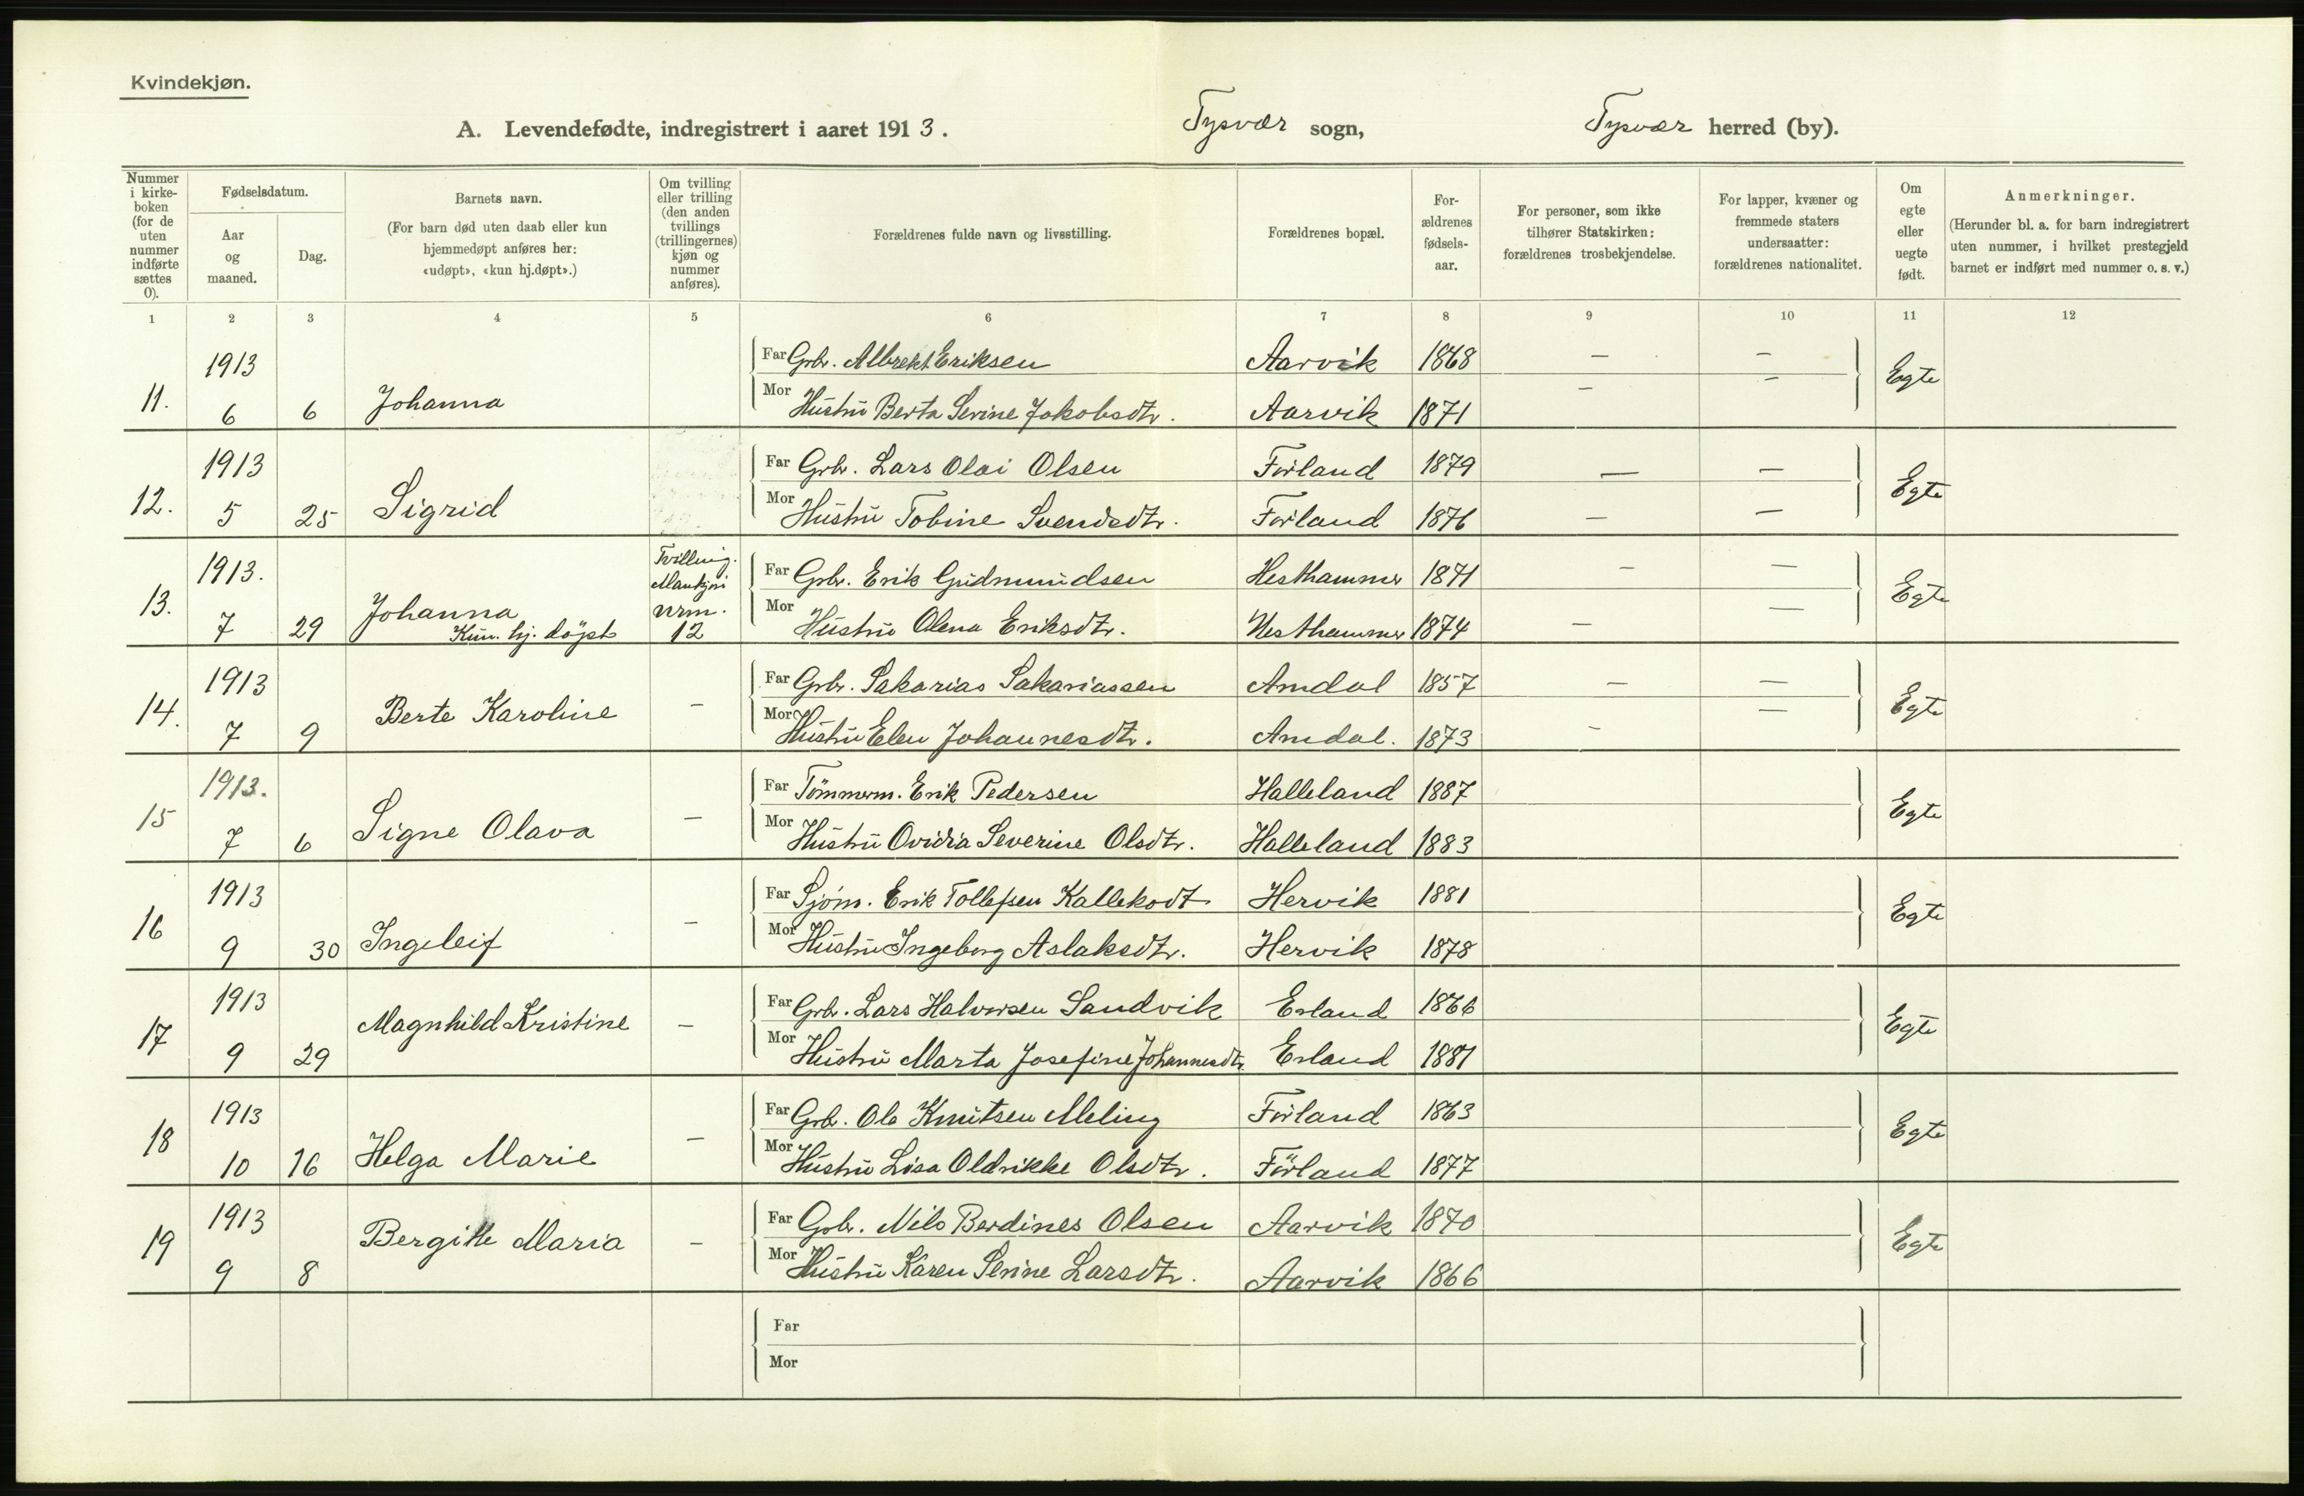 Kvindekjøn.
A. Levendefødte, indregistrert i aaret 1913. Tysvær sogn, Tysvær herred (by).
Nummer i kirkeboken (for de uten nummer indførte sættes 0).
Fødselsdatum.
Aar og maaned.
Dag.
Barnets navn.
(For barn død uten daab eller kun hjemmedøpt anføres her: «udøpt», «kun hj.døpt».)
Om tvilling eller trilling (den anden tvillings (trillingernes) kjøn og nummer anføres).
Forældrenes fulde navn og livsstilling.
Forældrenes bopæl.
Forældrenes fødselsaar.
For personer, som ikke tilhører Statskirken: forældrenes trosbekjendelse.
For lapper, kvæner og fremmede staters undersaatter: forældrenes nationalitet.
Om egte eller uegte født.
Anmerkninger.
(Herunder bl. a. for barn indregistrert uten nummer, i hvilket prestegjeld barnet er indført med nummer o. s. v.)
1 2 3 4 5 6 7 8 9 10 11 12
1913 Far Grbr. Albrekt Eriksen Aarvik 1868 — —
11. 6 6 Johanna Mor Hustru Berta Serine Jakobsdtr. Aarvik 1871 — — Egte
1913 Far Grbr. Lars Olai Olsen Förland 1879 — —
12. 5 25 Sigrid Mor Hustru Tobine Svendsdtr. Förland 1876 — — Egte
1913. Tvilling. Mankjøn Far Grbr. Erik Gudmundsen Hesthammer 1871 — —
13. 7 29 Johanna Kun. hj. döpt nrm. 12 Mor Hustru Olena Eriksdtr. Hesthammer 1874 — — Egte
1913 Far Grbr. Sakarias Sakariassen Amdal 1857 — —
14. 7 9 Berte Karoline — Mor Hustru Elen Johannesdtr. Amdal. 1873 — — Egte
1913. Far Tömmerm. Erik Pedersen Halleland 1887
15 7 6 Signe Olava — Mor Hustru Ovidia Severine Olsdtr. Halleland 1883 Egte
1913 Far Sjöm. Erik Tollefsen Kallekodt Hervik 1881
16 9 30 Ingeleif — Mor Hustru Ingeborg Aslaksdtr. Hervik 1878 Egte
1913 Far Grbr. Lars Halvorsen Sandvik Erland 1866
17 9 29 Magnhild Kristine — Mor Hustru Marta Josefine Johannesdtr. Erland 1881 Egte
1913 Far Grbr. Ole Knutsen Meling Förland 1863
18 10 16 Helga Marie — Mor Hustru Lisa Oldrikke Olsdtr. Förland 1877 Egte
1913 Far Grbr. Nils Berdines Olsen Aarvik 1870
19 9 8 Bergitte Maria — Mor Hustru Karen Serine Larsdtr. Aarvik 1866 Egte
Far
Mor